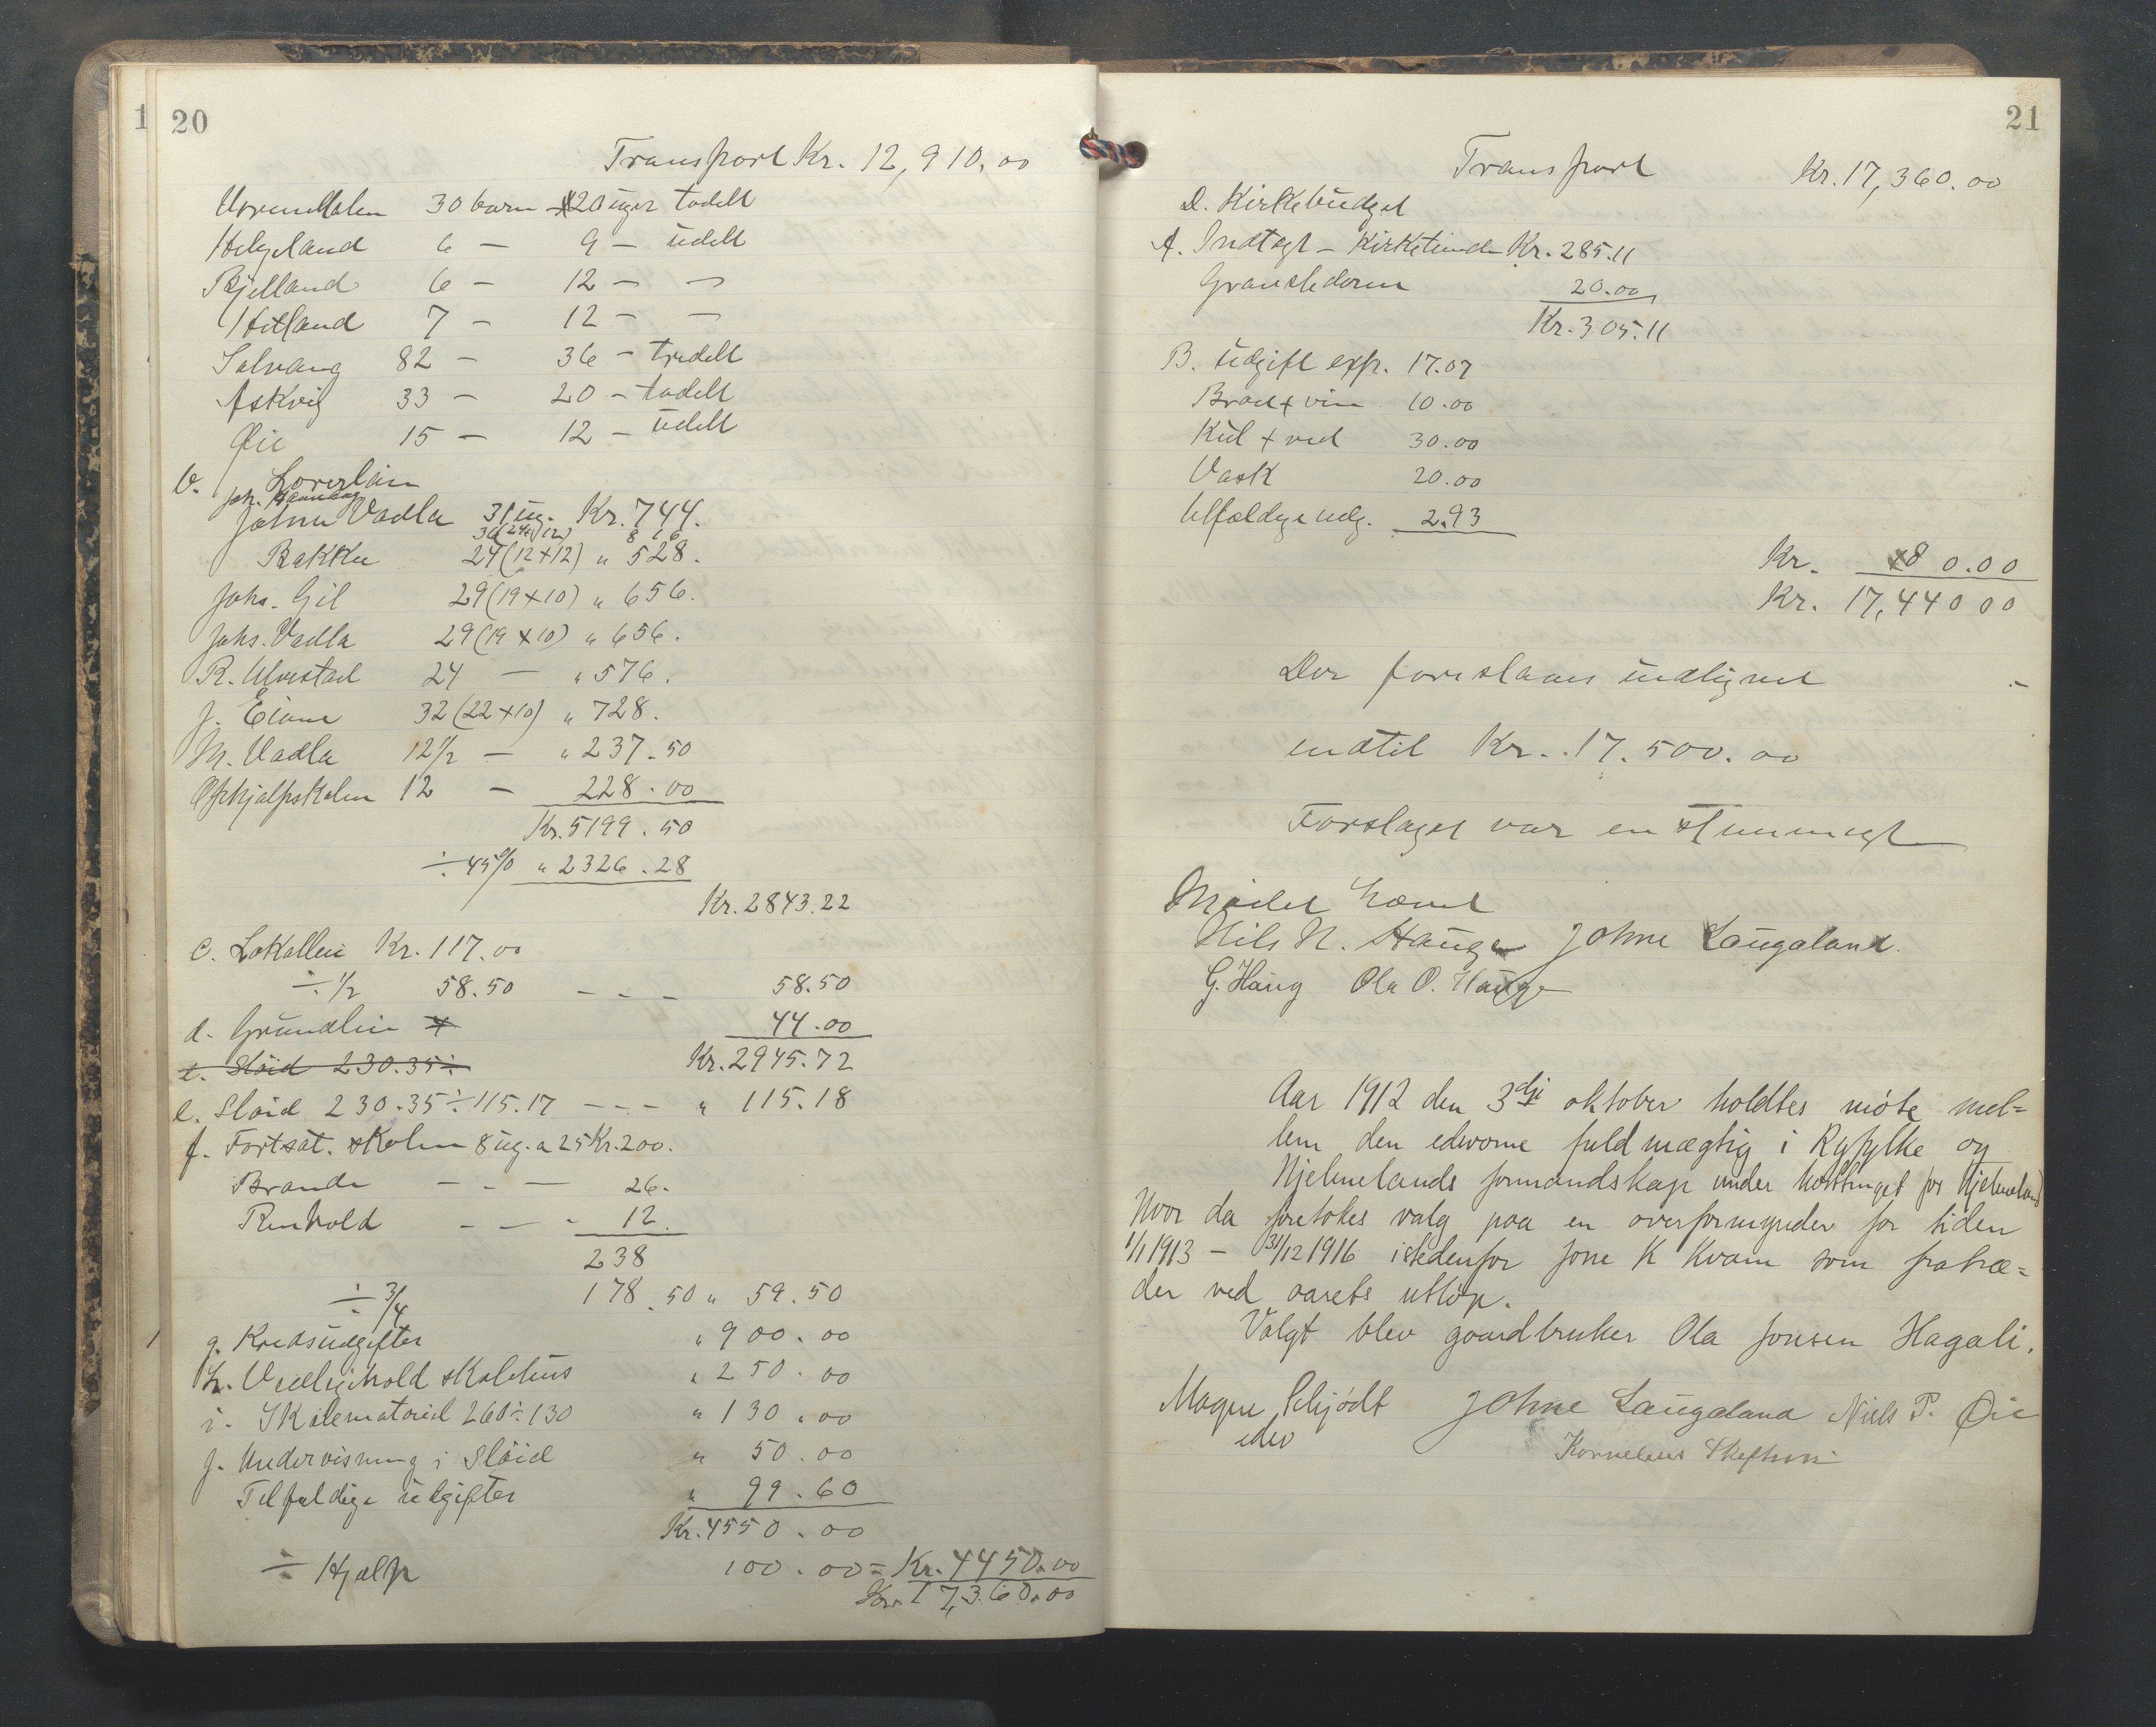 1
20
Transport Kr. 12,910.00
30 barn 20 uger todelt
Helgeland 6 — 9 — udelt
Bjelland 6 — 12 — —
Hetland 7 — 12 — —
Solvang 82 — 36 — tredelt
Askvig 33 — 20 — todelt
Øie 15 — 12 — udelt
b. Lærerløn
Vadla 31 ug. Kr. 744.
816
Bakken 24 (12+12) " 528.
Johs. Gil 29 (19+10) " 656.
Johs. Vadla 29 (19+10) " 656.
R. Ulvestad 24 — " 576.
J. Eiane 32 (22+10) " 728.
M. Vadla 12½ — " 237.50
12 — 228.00
Kr. 5199.50
÷ 45% " 2326.28
Kr. 2843.22
c. Lokalleie Kr. 117.00
÷ ½ 58.50 - - - 58.50
d. Grundleie 44.00
e. Sløid 230.35 ÷ Kr. 2945.72
e. Sløid 230.35 ÷ 115.17 - - - " 115.18
f. Fortsat. skolen 8 ug. a 25 Kr. 200.
Brænde - - - 26.
Renhold - - - 12.
238
÷ 3/4 178.50 " 59.50
g. Kredsudgifter " 900.00
h. Vedligehold skolehus " 250.00
i. Skolemateriel 260 ÷ 130 " 130.00
j. Undervisning i Sløid " 50.00
Tilfældige udgifter " 99.60
Kr. 4550.00
÷ Hjælp 100.00 = Kr. 4450.00
Kr. 17,360.00
21
Transport Kr. 17,360.00
D. Kirkebudget
A. Indtægt - Kirketiende Kr. 285.11
20.00
Kr. 305.11
B. Udgift exp. 17.07
Brød + vin 10.00
Kul + ved 30.00
Vask 20.00
Tilfældige udg. 2.93
Kr. 80.00
Kr. 17,440 00
Der foreslaaes udlignet
indtil Kr. 17.500.00
Forslaget var enstemmigt
Mødet hævet
Nils N. Hauge Johne Laugaland.
G. Haug Ola O. Hauge
Aar 1912 den 3dje oktober holdtes møte mel=
lem den edsvorne fuldmægtig i Ryfylke og
Hjelmelands formandskap under høsttinget for Hjelmeland
hvor da foretokes valg paa en overformynder for tiden
1/1 1913 - 31/12 1916 istedenfor Jone K Kvam som fratræ=
der ved aarets utløp.
Valgt blev gaardbruker Ola Jonsen Hagali.
Magne Schjødt Johne Laugaland Niels P. Øie
edsv
Kornelius